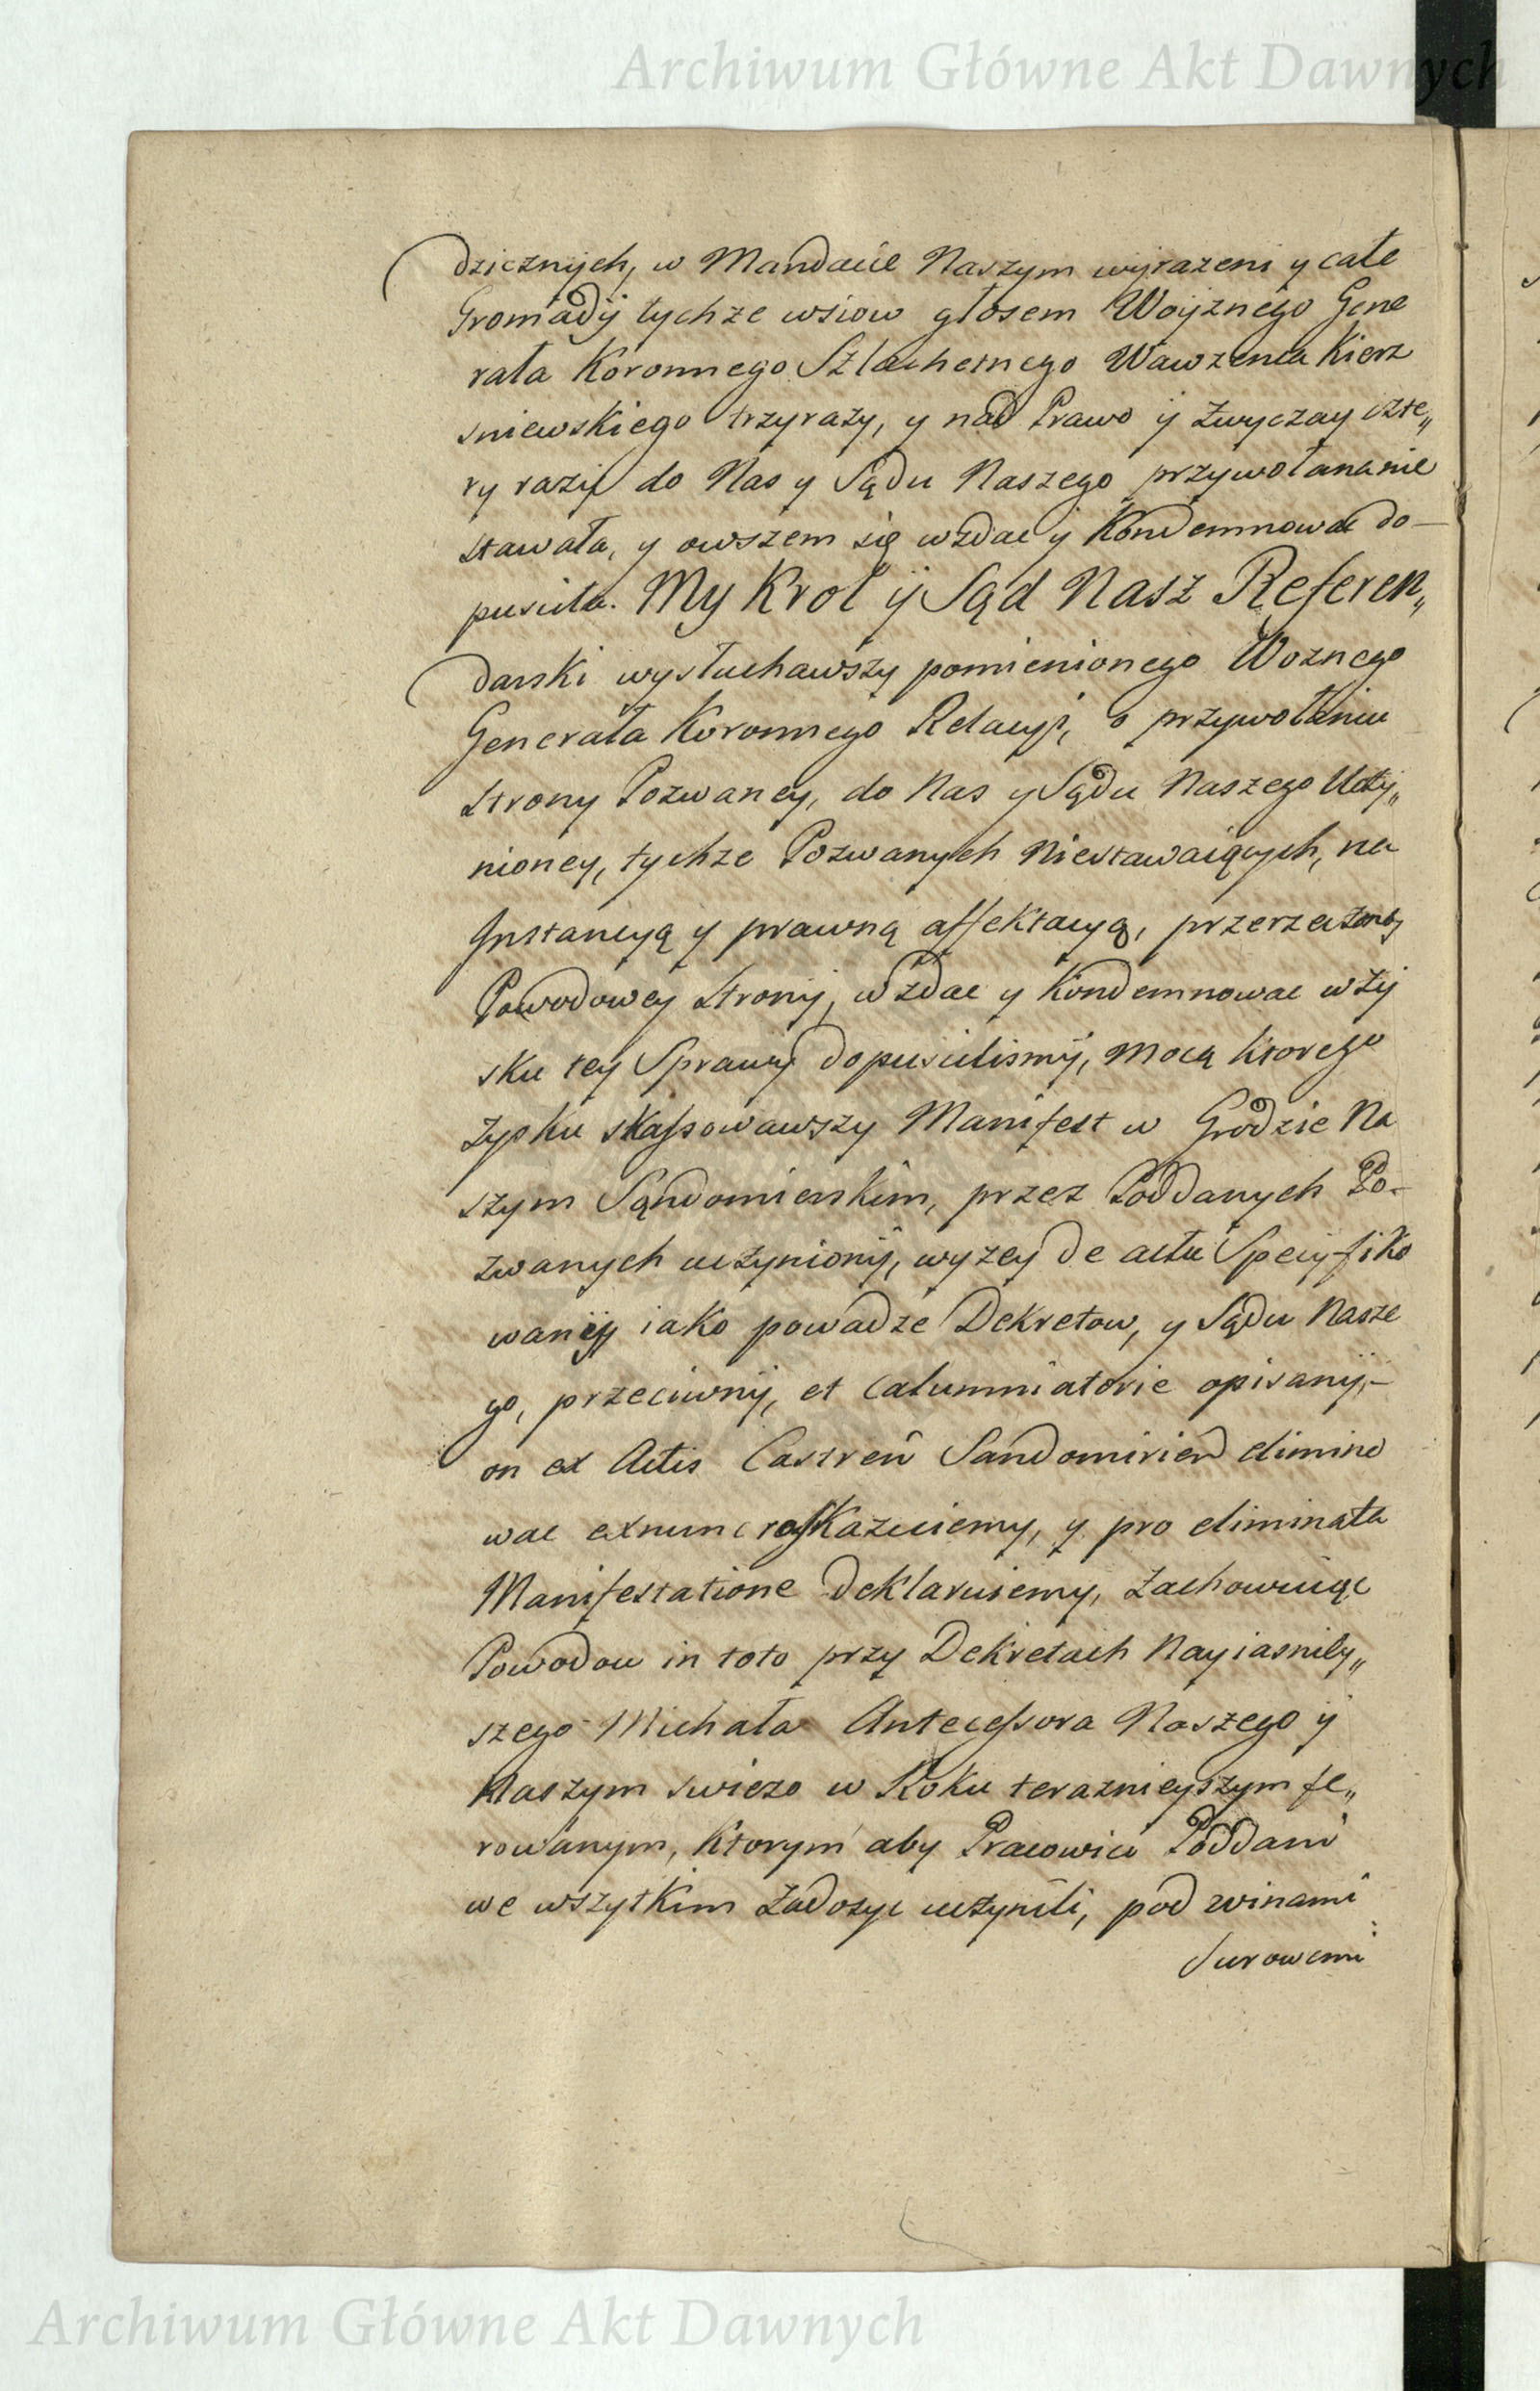 Archiwum Główne Akt Dawnych
dzicznych, w Mandacie Naszym wyrazeni y całe
Gromady tychze wsiow głosem Woyznego Gene
rała Koronnego Szlachetnego Wawrzenca Kierz
sniewskiego trzyrazy, y nad Prawo y Zwyczay czte„
ry razy do Nas y Sądu Naszego przywołana nie
stawała, y owszem się wzdac y Kondemnowac do—
pusciła. My Krol y Sąd Nasz Referen„
darski wysłuchawszy pomienionego Woznego
Generała Koronnego Relacyi, o przywołaniu
Strony Pozwaney, do Nas y Sądu Naszego Uczy„
nioney, tychze Pozwanych niestawaiących, na
Instancyą y prawną affektacyą, przerzeczoney
Powodowey Strony, wzdac y Kondemnowac w Zy
sku tey Sprawy dopuscilismy, mocą ktorego
Zysku skassowawszy Manifest w Grodzie Na
szym Sandomierskim, przez Poddanych Po-
zwanych uczyniony, wyzey de actu Specyfiko
wany iako powadze Dekretow, y Sądu Nasze
go, przeciwny, et calumniatorie opisany,-
on ex Actis Castren Sandomirien elimino
wac exnunc roskazuiemy, y pro eliminata
Manifestatione deklaruiemy, Zachowuiąc
Powodow in toto przy Dekretach Nayiasniey„
szego Michała Antecessora Naszego y
Naszym swiezo w Roku terazniejszym fe„
rowanym, ktorym aby Pracowici Poddani
we wszytkim Zadosyc uczynili, pod winami
Surowemi
Archiwum Główne Akt Dawnych